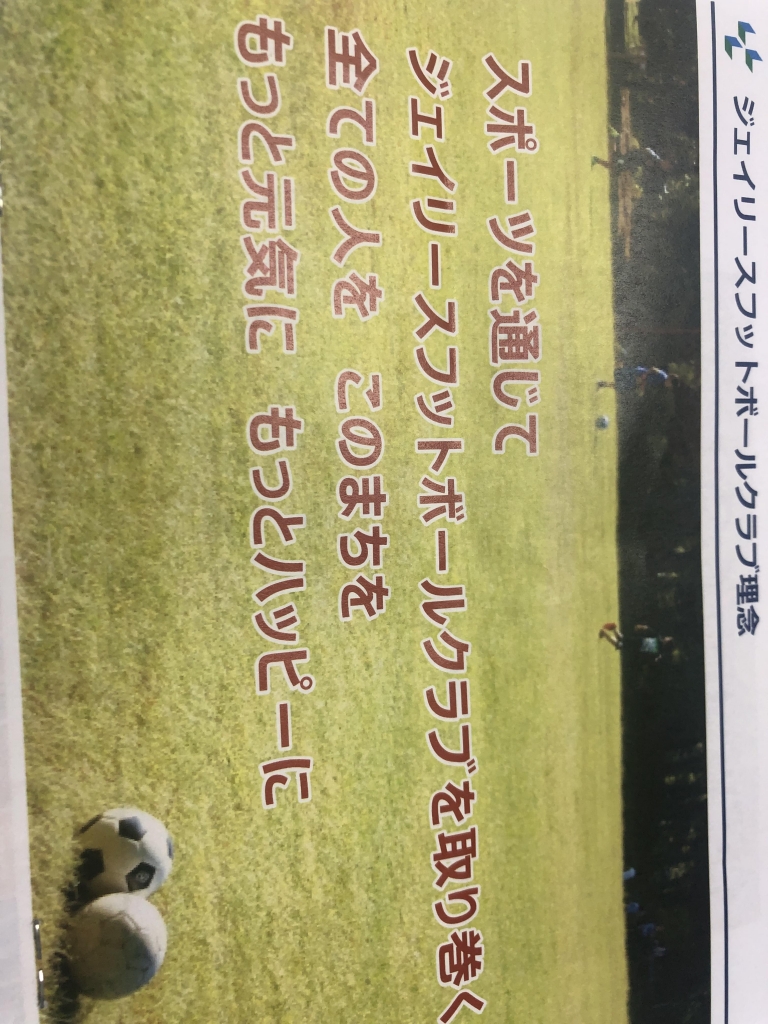 ジェイリースフットボールクラブ理念
スポーツを通じて
ジェイリースフットボールクラブを取り巻く
全ての人を　このまちを
もっと元気に　もっとハッピーに